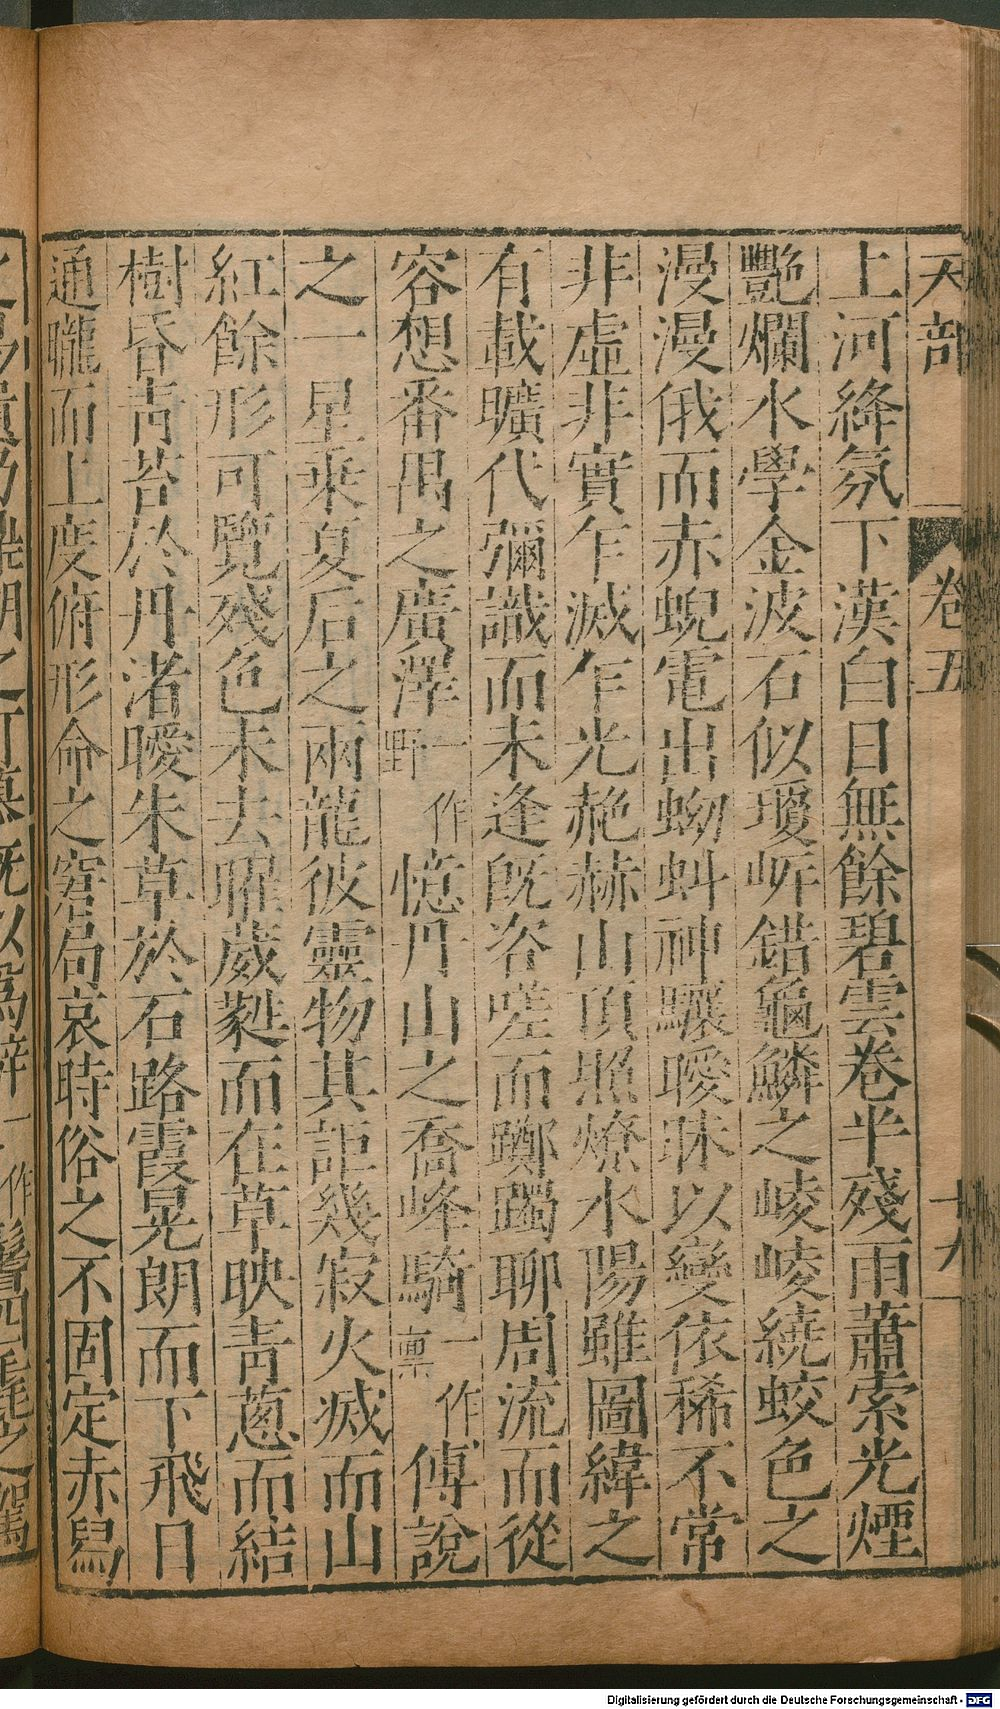 天部 卷五 十九
上河絳氛下漢白日無餘碧雲卷半殘雨蕭索光煙
艷爛水學金波石似瓊岓錯龜鱗之崚崚繞蛟色之
漫漫俄而赤蜺電出蚴蚪神驤曖昧以變依稀不常
非虛非實乍滅乍光赩赫山頂照燎水陽雖圖緯之
有載曠代彌識而未逢旣咨嗟而躑躅聊周流而從
容想番禺之廣澤一作野憶丹山之喬峰騎一作稟傅說
之一星乘夏后之兩龍彼靈物其詎幾寂火滅而山
紅餘形可覽殘色未去曜葳蕤而在草映靑蔥而結
樹昏靑苔於丹渚曖朱草於石路霞晃朗而下飛日
通朧而上度俯形命之窘局哀時俗之不固定赤舄
Digitalisierung gefördert durch die Deutsche Forschungsgemeinschaft - DFG